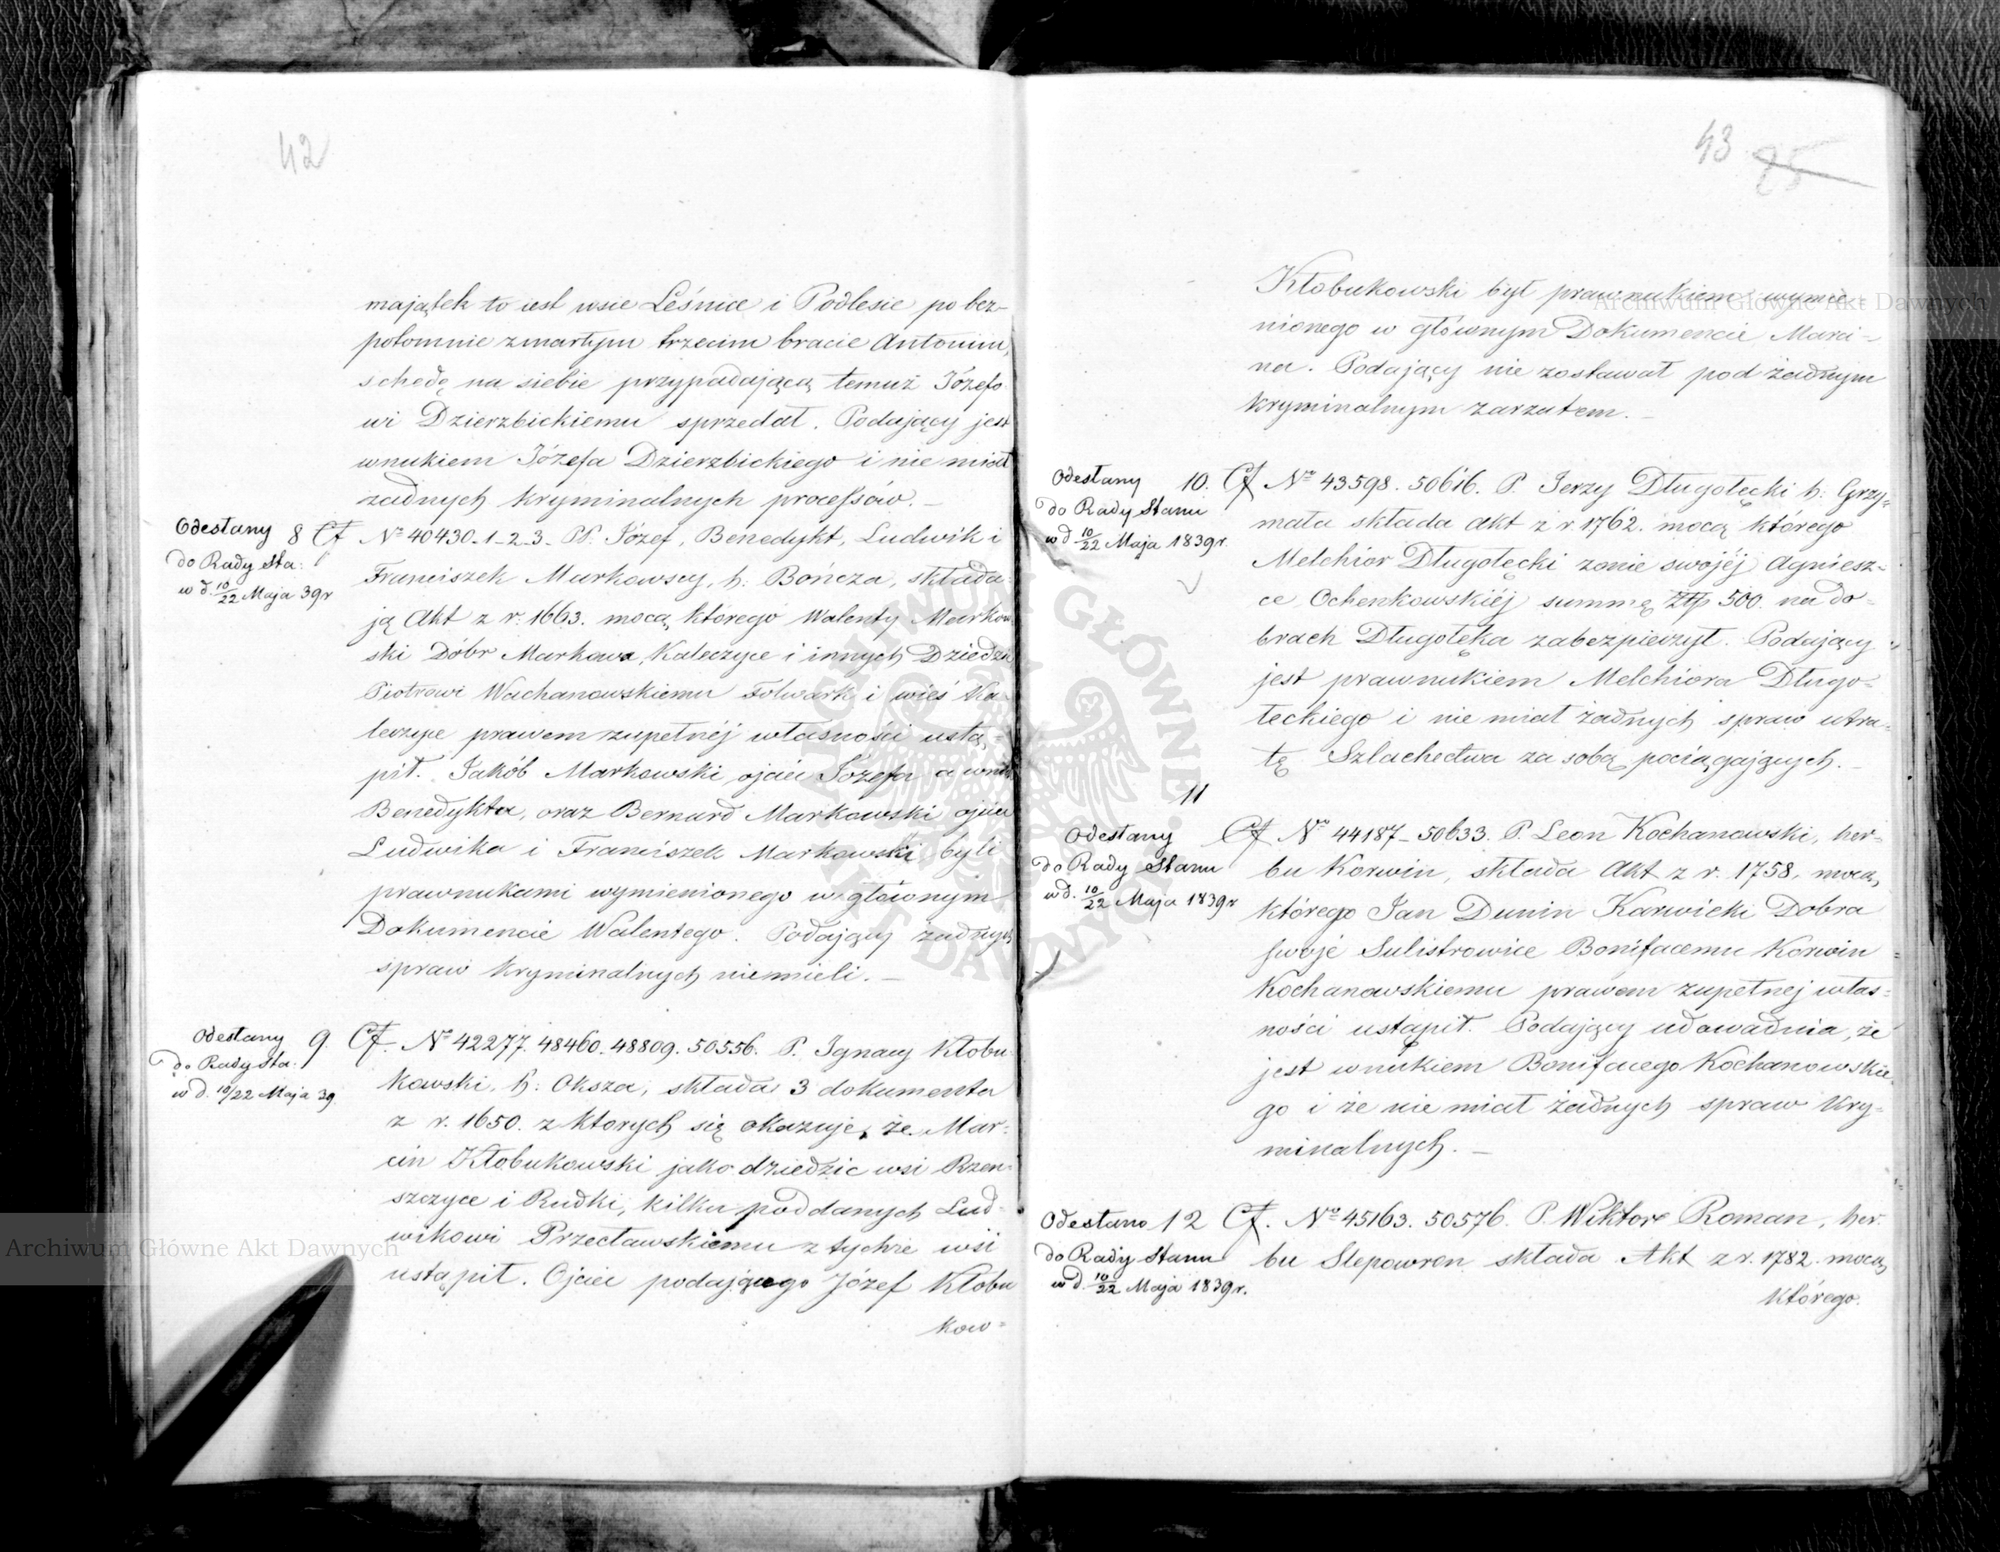 42
majątek to iest wsie Leśnice i Podlesie po bez-
potomnie zmarłym trzecim bracie Antonim,
schedę na siebie przypadającą temuż Józefo
wi Dzierzbickiemu sprzedał. Podający jest
wnukiem Józefa Dzierzbickiego i nie miał
żadnych kryminalnych processów. —
Odesłany 8 Cf No 40430-1-2-3. PP. Józef, Benedykt, Ludwik i
do Rady Sta:
w d. 10/22 Maja 39 r
Franciszek Markowscy, h: Bończa, składa
ją Akt z r. 1663. mocą ktorego Walenty Markow
ski Dóbr Markowa, Kaleczyce i innych Dziedzic
Piotrowi Wachanowskiemu Folwark i wieś Ka-
leczyce prawem zupełnéj własności ustą-
pił. Jakób Markowski ojciec Józefa a wnuk
Benedykta, oraz Bernard Markowski ojciec
Ludwika i Franciszek Markowski byli
prawnukami wymienionego w głównym
Dokumencie Walentego. Podający żadnych
spraw kryminalnych niemieli. —
Odesłany 9. Cf. No 42277. 48460. 48809. 50556. P. Ignacy Kłobu
do Rady Sta:
w d. 10/22 Maja 39
kowski, h: Oksza, składa 3 dokumenta
z r. 1650. z ktorych się okazuje, że Mar-
cin Kłobukowski jako dziedzic wsi Rzen-
szczyce i Rudki, kilku poddanych Lud-
wikowi Przecławskiemu z tychże wsi
ustąpił. Ojciec podającego Józef Kłobu
kow-
43 85
Kłobukowski był prawnukiem wymie-
nionego w głównym Dokumencie Marci-
na. Podający nie zostawał pod żadnym
kryminalnym zarzutem. —
Odesłany 10. Cf No 43598. 50616. P. Jerzy Długołęcki h: Grzy-
do Rady Stanu
w d. 10/22 Maja 1839 r.
mała składa Akt z r 1762. mocą którego
Melchior Długołęcki żonie swojéj Agniesz-
ce Ochenkowskiéj summę Złp 500. na do-
brach Długołęka zabezpieczył. Podający
jest prawnukiem Melchiora Długo-
łeckiego i nie miał żadnych spraw utra-
tę Szlachectwa za sobą pociągających. —
11
Odesłany Cf No 44187-50633. P. Leon Kochanowski, her-
do Rady Stanu
w d. 10/22 Maja 1839 r
bu Korwin, składa Akt z r. 1758. mocą
którego Jan Dunin Karwicki Dobra
swoje Sulistrowice Bonifacemu Korwin
Kochanowskiemu prawem zupełnej włas-
ności ustąpił. Podający udowadnia, że
jest wnukiem Bonifacego Kochanowskie-
go i że nie miał żadnych spraw kry-
minalnych. —
Odesłano 12 Cf. No 45163. 50576. P. Wiktor Roman, her.
do Rady Stanu
w d. 10/22 Maja 1839 r.
bu Slepowron składa Akt z r. 1782. mocą
którego.
Archiwum Główne Akt Dawnych
Archiwum Główne Akt Dawnych
ARCHIWUM GŁÓWNE AKT DAWNYCH